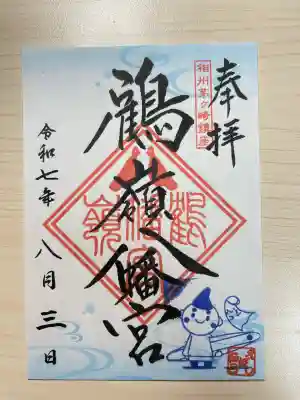 奉拝
相州茅ヶ崎鎮座
鶴嶺八幡宮
令和七年 八月三日